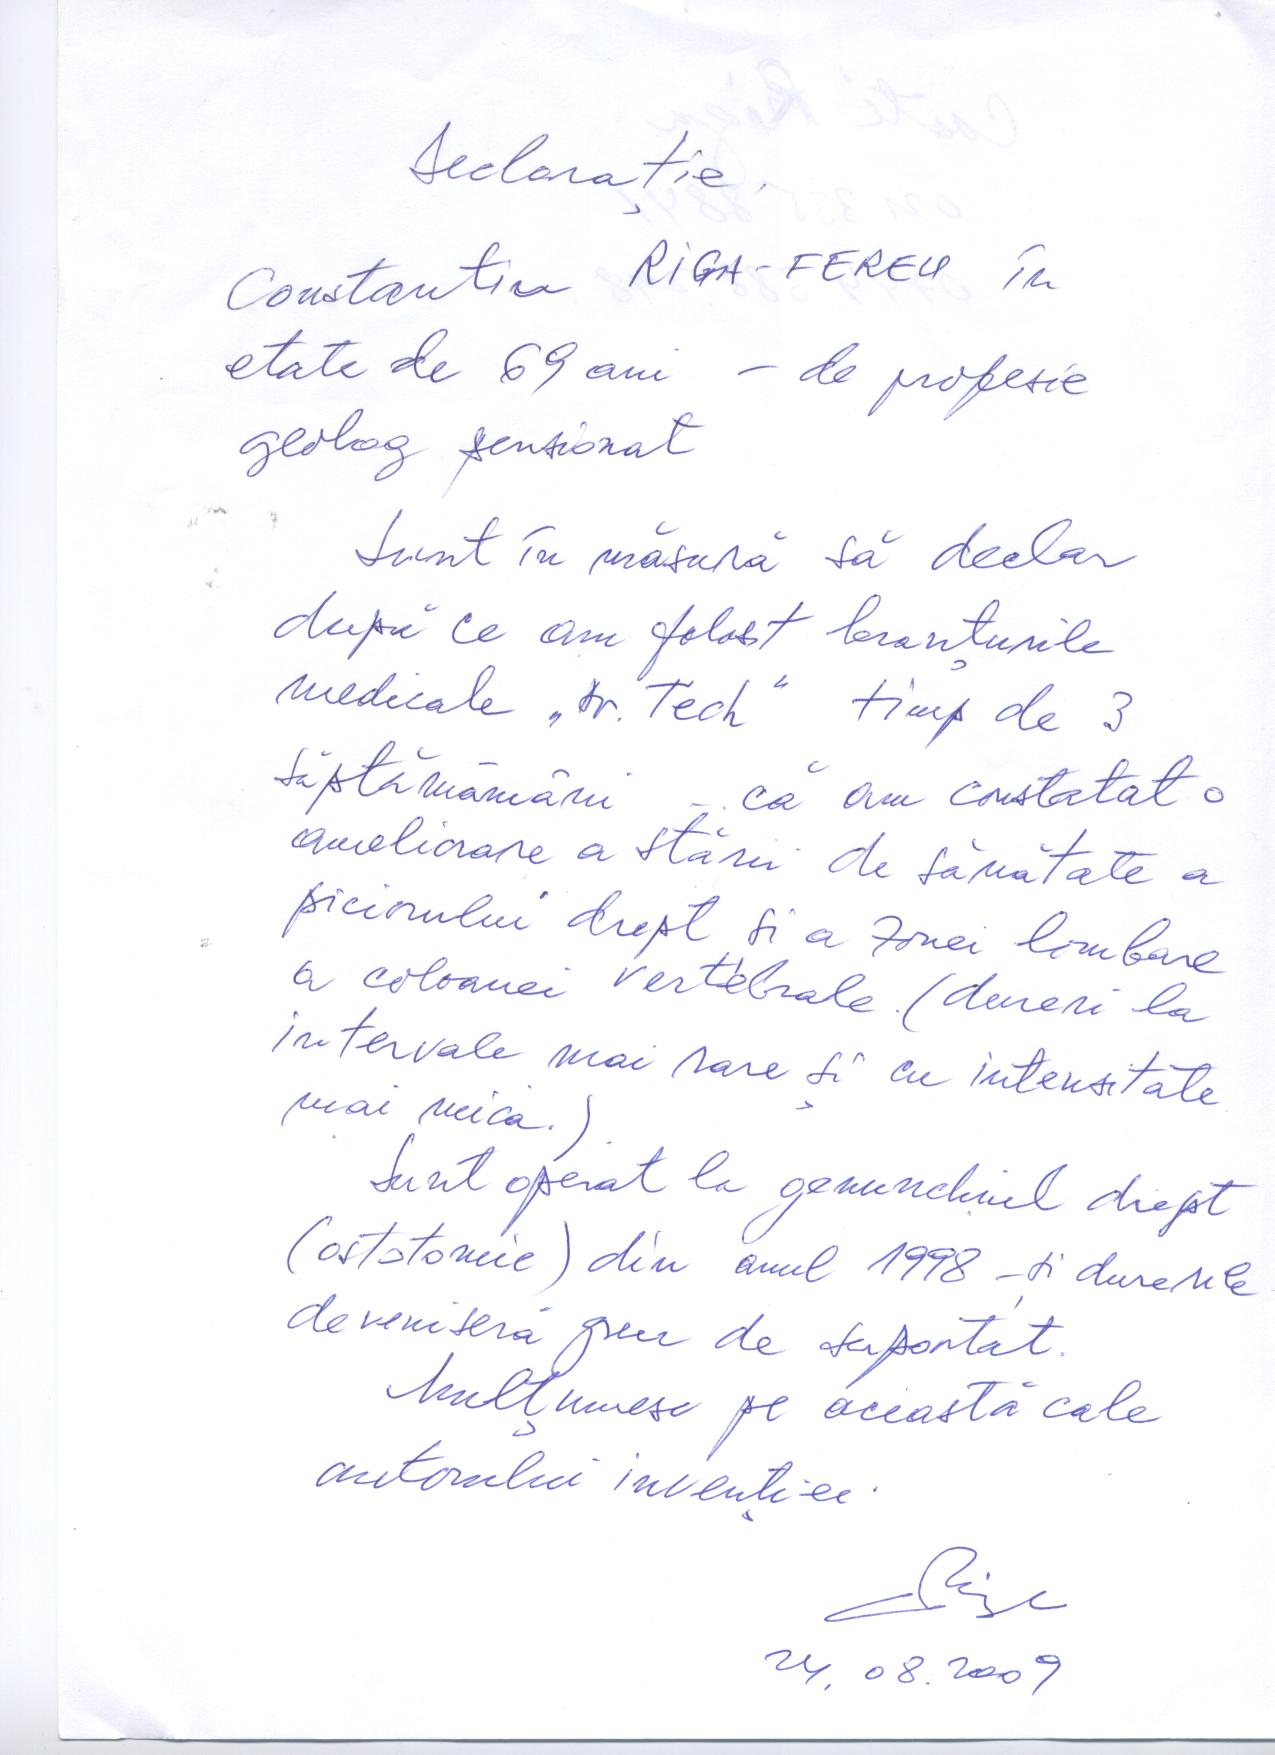 Declarație.
Constantin RIGA-FERECU în
etate de 69 ani – de profesie
geolog pensionat
Sunt în măsură să declar
după ce am folost branțurile
medicale „Dr. Tech“ timp de 3
săptămâmâni – că am constatat o
ameliorare a stării de sănătate a
piciorului drept și a zonei lombare
a coloanei vertebrale. (dureri la
intervale mai rare și cu intensitate
mai mica.)
Sunt operat la genunchiul drept
(ostotomie) din anul 1998 – și durerile
deveniseră greu de suportat.
Mulțumesc pe această cale
autorului invenției.
Riga
24.08.2009